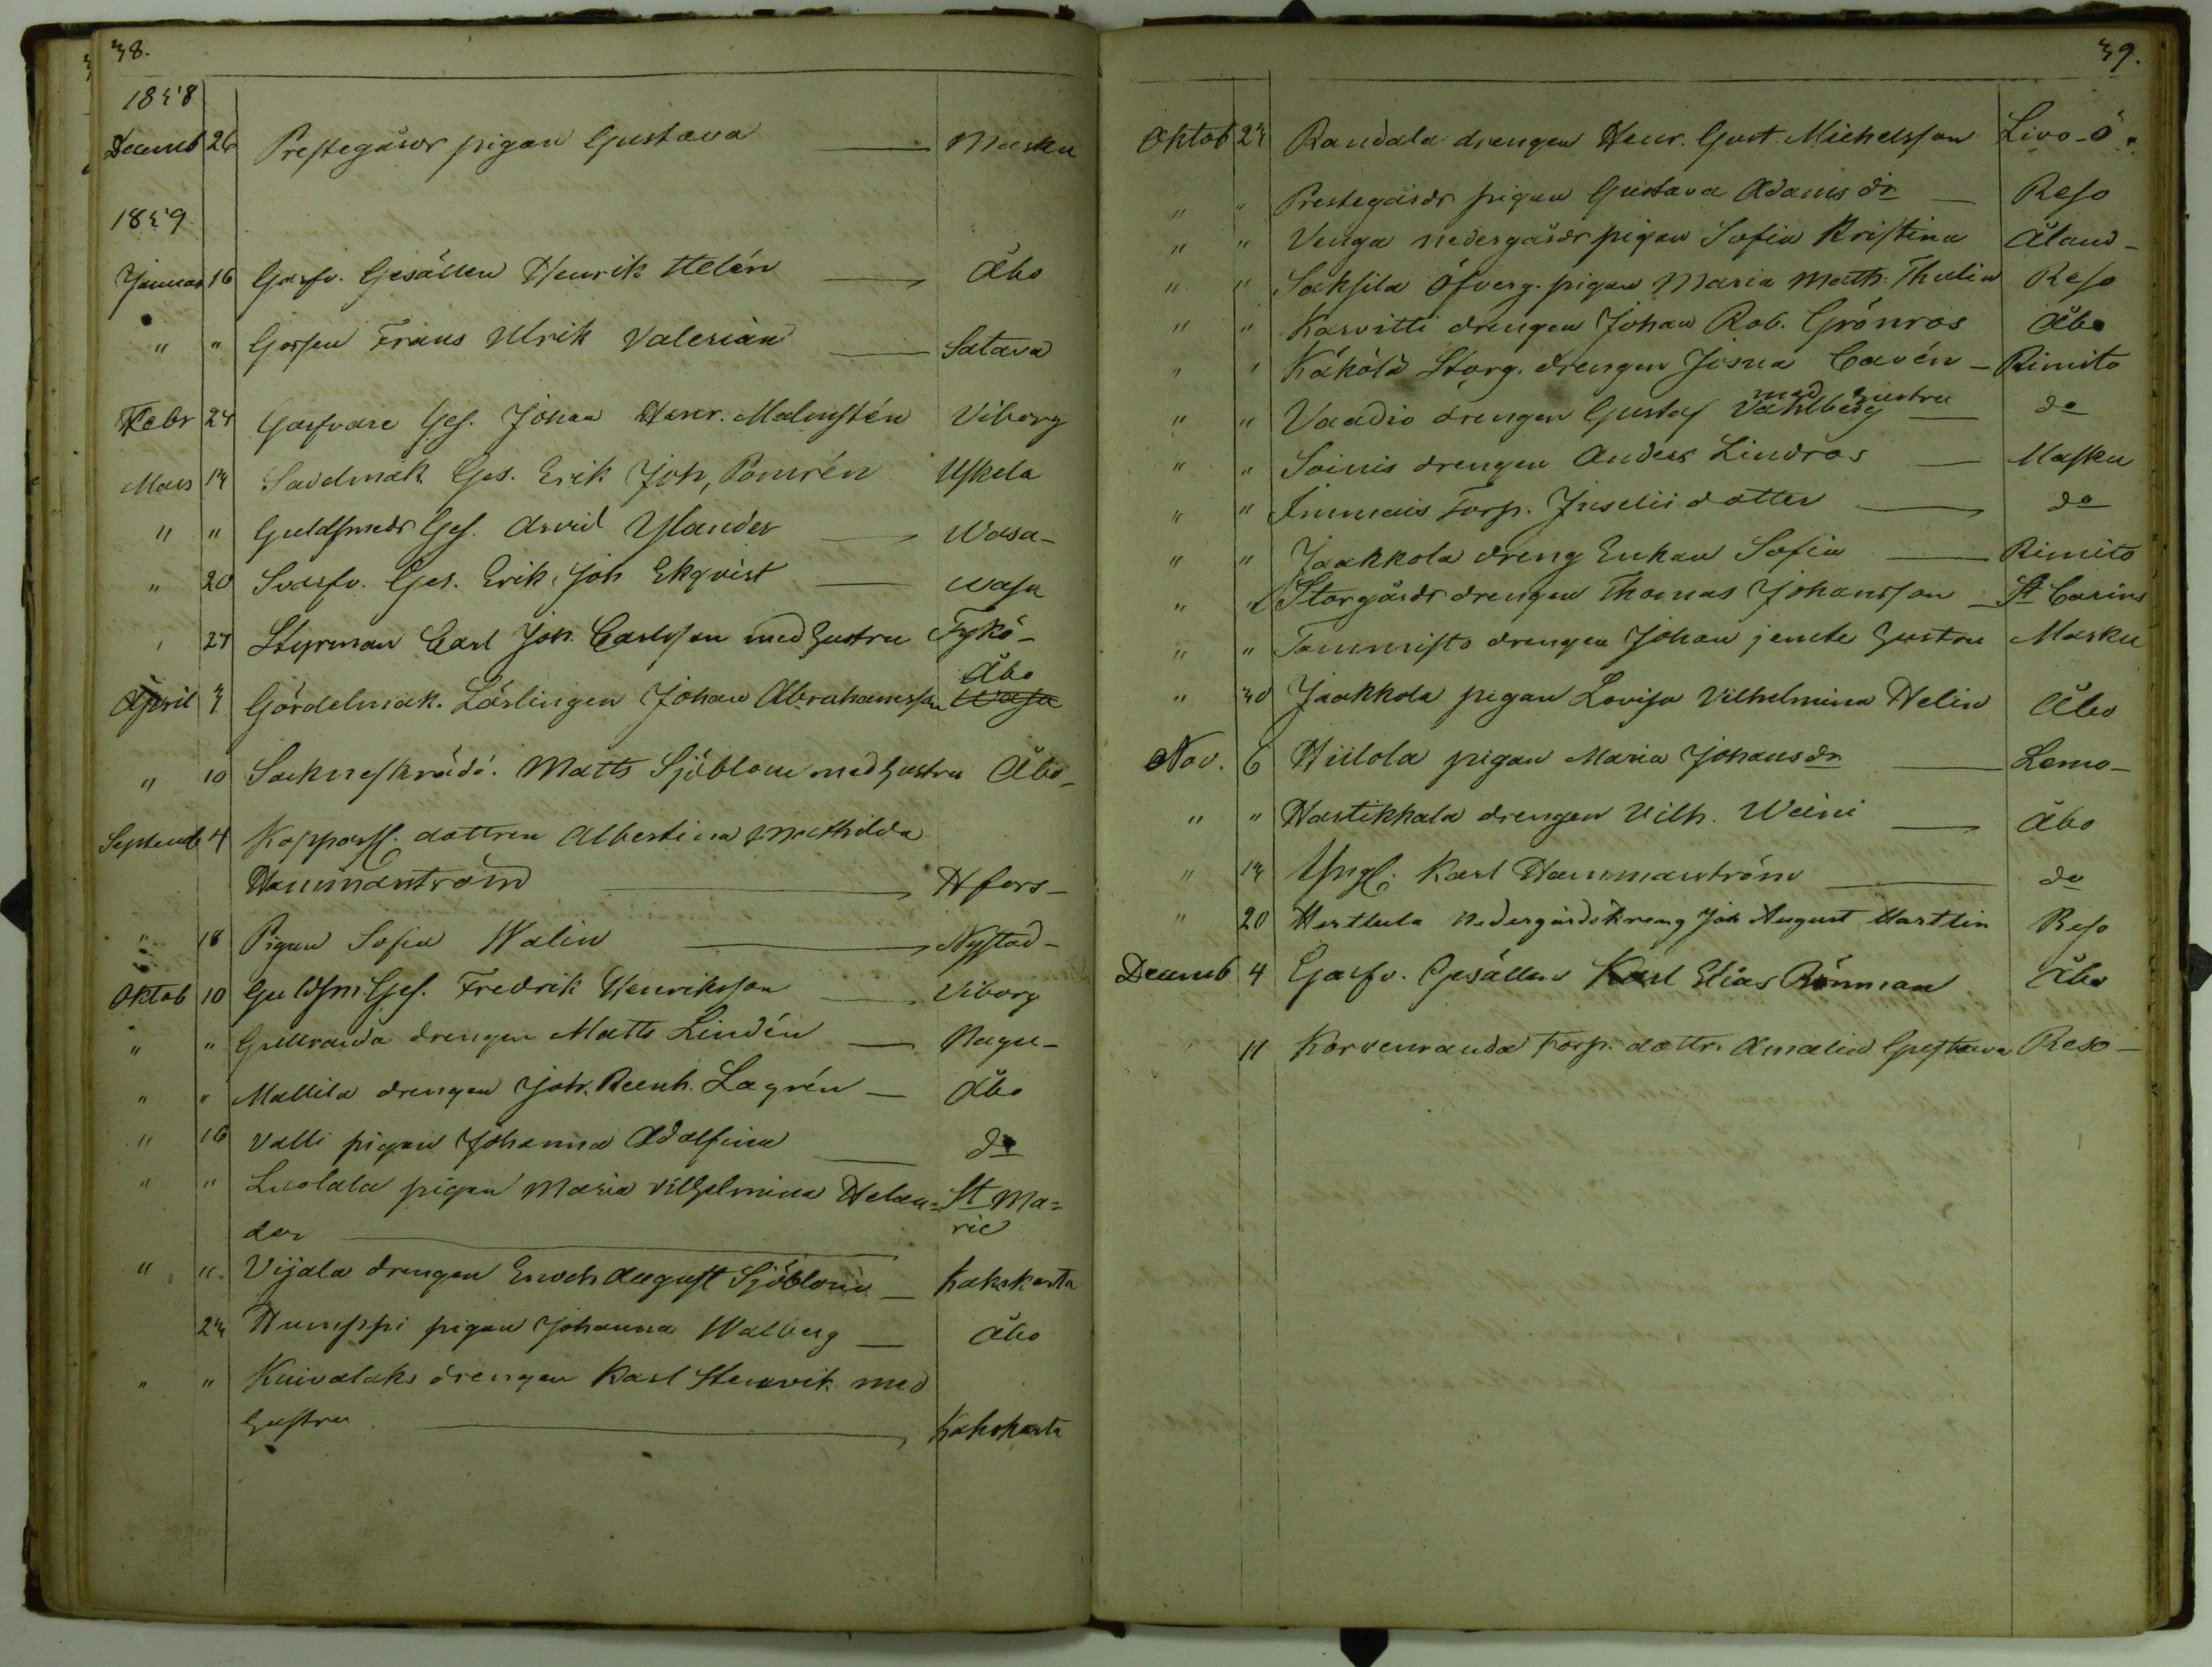 38.
1858
Decemb 26 Prestegårds pigan Gustava — Masku
1859
Januar 16 Garfv. Gesällen Henrik Helén — Åbo
" " Gossen Frans Ulrik Valerian — Satava
Febr 24 Garfvare Ges. Johan Henr. Malmstén Viborg
Mars 13 Sadelmak Ges. Erik Joh, Pomrén Uskela
" " Guldsmeds Ges. Arvid Ylander — Wasa-
" 20 Svarfv. Ges. Erik Joh Ekqvist — Wasa
" 27 Styrman Carl Joh. Carlsson med hustru Tykö-
Åbo
April 3 Gördelmak. Lärlingen Johan Abrahamsson Wasa
" 10 Matts Sjöblom med hustru Åbo-
Septemb 4 Kopparsl. dottren Albertina Mathilda
Hammarström — Hfors-
" 18 Pigan Sofia Walin — Nystad-
Oktob 10 Guldsm. Ges. Fredrik Henriksson — Viborg
" " Gullranda drengen Matts Lindén — Nagu-
" " Mallila drengen Joh. Reinh. Lagrén — Åbo
" 16 Valli pigan Johanna Adolfina — do
" " Luolala pigan Maria Vilhelmina Helan= St Ma=
der — rie
" " Vijala drengen Enoch August Sjöblom — Kakskerta
23 Humppi pigan Johanna Walberg — Åbo
" " Kuivalaks drengen Karl Stenvik med
hustru — Kakskerta
39.
Oktob 23 Randala drengen Henr. Gust. Michelsson Livo-ö.
" " Prestegårds pigan Gustava Adamsdr — Reso
" " Venga nedergårds pigan Sofia Kristina Åland-
" " Saksila Öfverg. pigan Maria Math. Thulin Reso
" " Karvitti drengen Johan Rob. Grönros Åbo
" " Käkölä Storg. drengen Josua Cavén — Rimito
med hustru
" " Vaadio drengen Gustaf Vahlberg — do
" " Soinis drengen Anders Lindros — Masku
" " Immais Torp. Juselii dotter — do
" " Jaakkola dreng Enkan Sofia — Rimito
" " Storgårds drengen Thomas Johansson — St Carins
" " Tammisto drengen Johan jemte hustru Masku
" 30 Jaakkola pigan Lovisa Vilhelmina Helin Åbo
Nov. 6 Hiilola pigan Maria Johansdr — Lemo-
" " Hastikkala drengen Vilh. Weini — Åbo
" 13 Yngl. Karl Hammarström — do
" 20 Herttula Nedergårds dreng Joh August Martlin Reso
Decemb 4 Garfv. Gesällen Karl Elias Rönman Åbo
" 11 Korvenranda Torp. dottr. Amalia Gustava Reso-